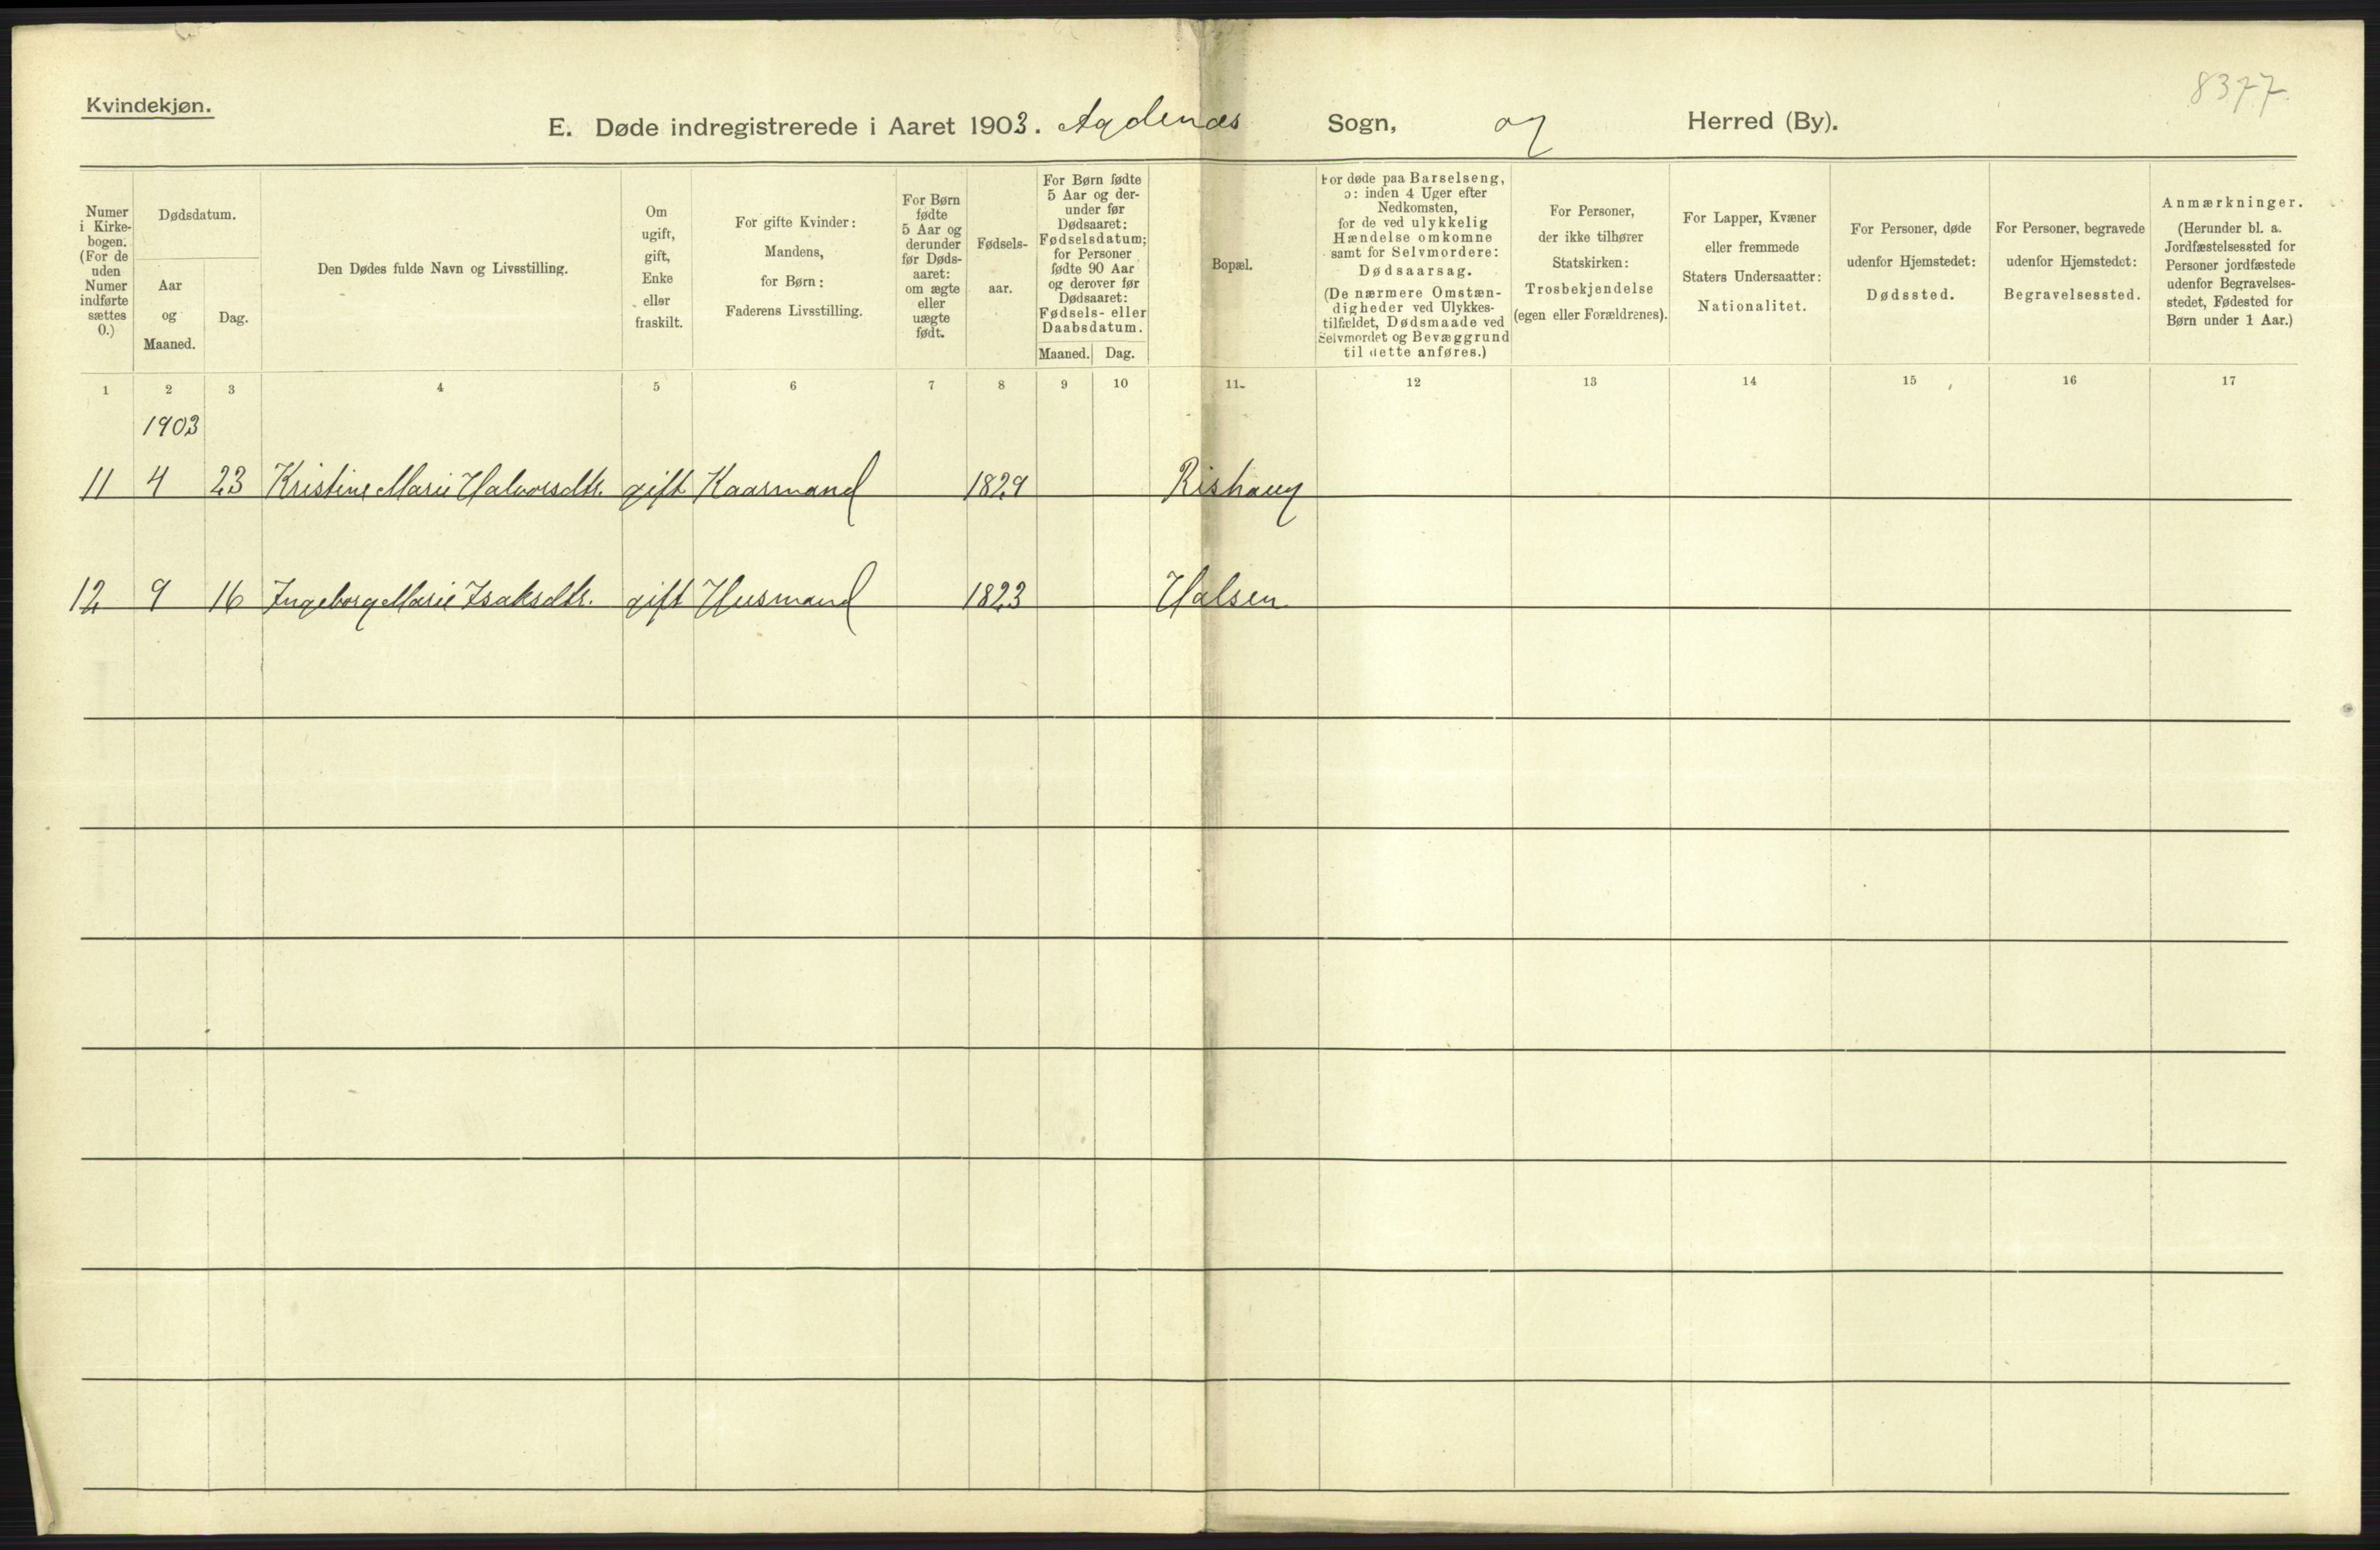 8377.
Kvindekjøn.
E. Døde indregistrerede i Aaret 1903. Agdenæs Sogn, og Herred (By).
Numer i Kirke-bogen. (For de uden Numer indførte sættes 0.)
Dødsdatum.
Aar og Maaned.
Dag.
Den Dødes fulde Navn og Livsstilling.
Om ugift, gift, Enke eller fraskilt.
For gifte Kvinder: Mandens, for Børn: Faderens Livsstilling.
For Børn fødte 5 Aar og derunder før Døds-aaret: om ægte eller uægte født.
Fødsels-aar.
For Børn fødte 5 Aar og der-under før Dødsaaret: Fødselsdatum; for Personer fødte 90 Aar og derover før Dødsaaret: Fødsels- eller Daabsdatum.
Maaned. Dag.
Bopæl.
For døde paa Barselseng, ɔ: inden 4 Uger efter Nedkomsten, for de ved ulykkelig Hændelse omkomne samt for Selvmordere: Dødsaarsag. (De nærmere Omstæn-digheder ved Ulykkes-tilfældet, Dødsmaade ved Selvmordet og Bevæggrund til dette anføres.)
For Personer, der ikke tilhører Statskirken: Trosbekjendelse (egen eller Forældrenes).
For Lapper, Kvæner eller fremmede Staters Undersaatter: Nationalitet.
For Personer, døde udenfor Hjemstedet: Dødssted.
For Personer, begravede udenfor Hjemstedet: Begravelsessted.
Anmærkninger. (Herunder bl. a. Jordfæstelsessted for Personer jordfæstede udenfor Begravelses-stedet, Fødested for Børn under 1 Aar.)
1 2 3 4 5 6 7 8 9 10 11 12 13 14 15 16 17
1903
11 4 23 Kristine Marie Halvorsdtr. gift Kaarmand 1829 Rishaug
12 9 16 Ingeborg Marie Isaksdtr. gift Husmand 1823 Halsen